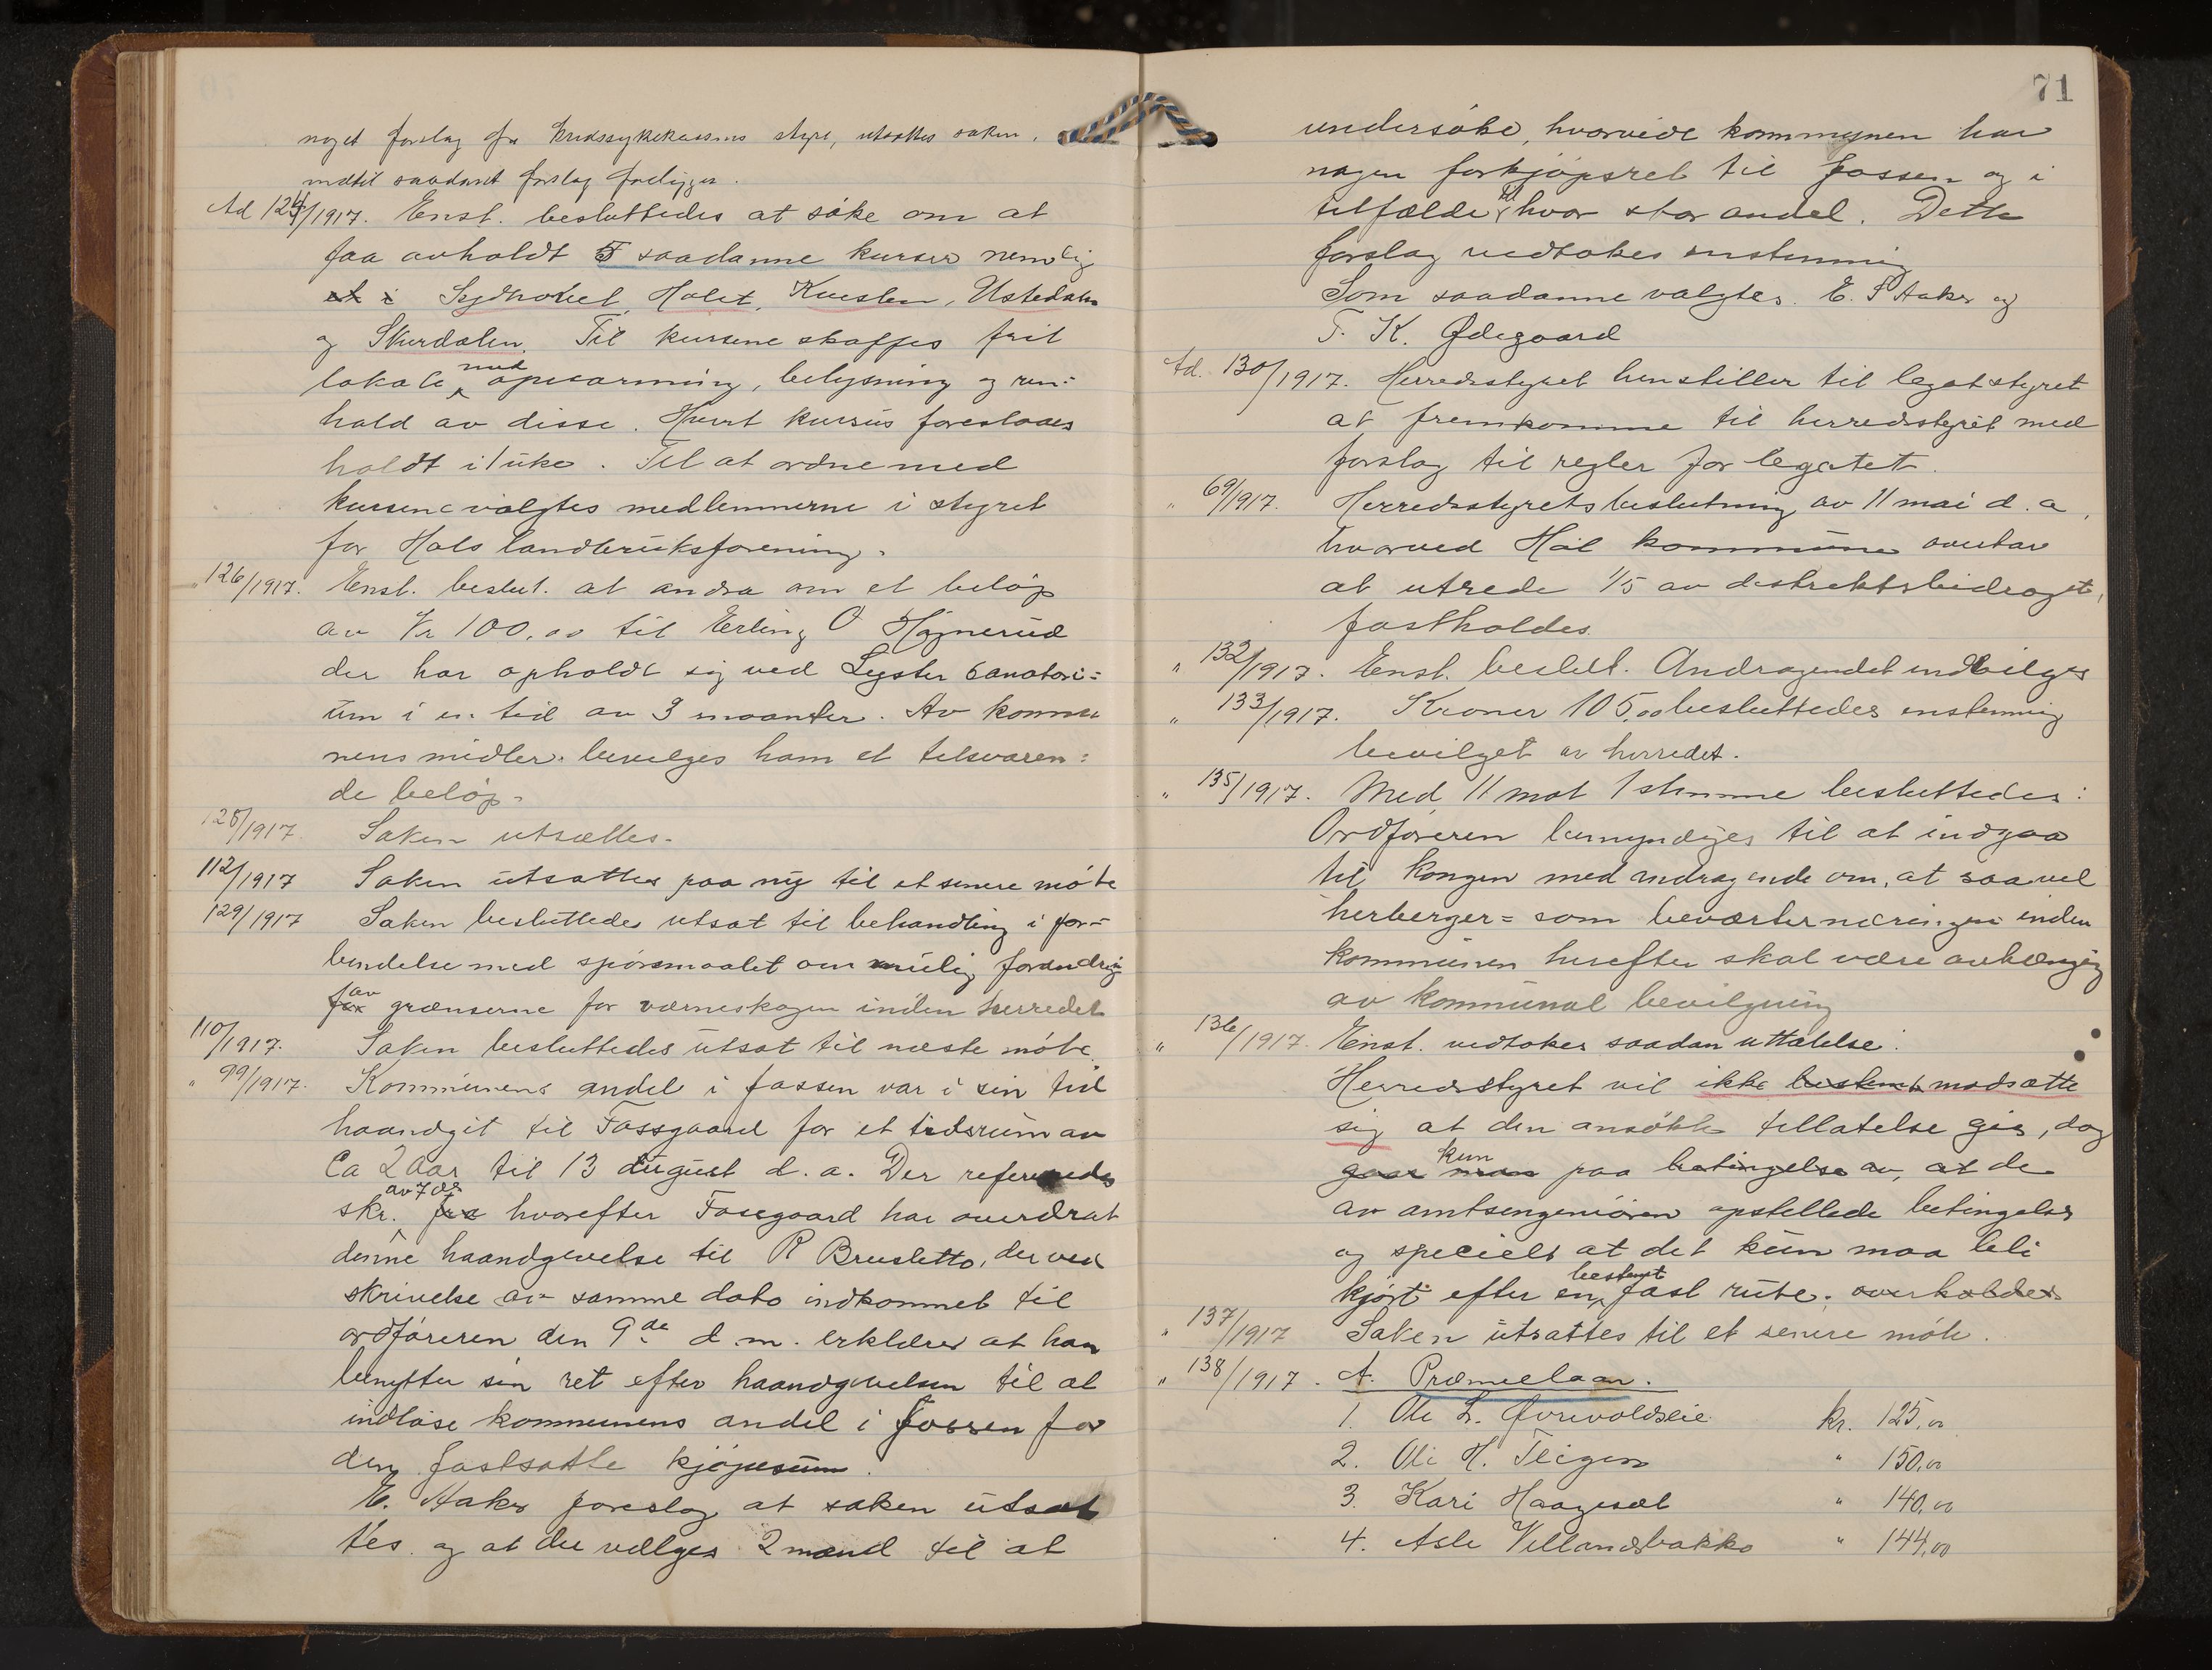 noget forslag fra kredssykekassens styre, utsattes saken,
indtil saadant forslag foreligger.
Ad 124/1917. Enst. besluttedes at søke om at
faa avholdt 5 saadanne kurser nemlig
et i Sydhovet, Holet, Kvislen, Ustedalen
og Skurdalen. Til kursene skaffes frit
lokale med opvarming, belysning og ren=
hold av disse. Hvert kursus foreslaaes
holdt i 1 uke. Til at ordne med
kursene valgtes medlemmerne i styret
for Hols landbruksforening.
" 126/1917. Enst. beslut. at andra om et beløp
av Kr 100,00 til Erling O. Høgnerud
der har opholdt sig ved Lyster sanatori=
um i en tid av 3 maaneder. Av kommu
nens midler bevilges ham et tilsvaren=
de beløp.
128/1917 Saken utsættes.
112/1917 Saken utsattes paa ny til et senere møte
129/1917 Saken besluttedes utsat til behandling i for=
bindelse med spørsmaalet om mulig forandring
for av grænserne for værneskogen inden herredet
110/1917. Saken besluttedes utsat til næste møte.
" 99/1917. Kommunens andel i fossen var i sin tid
haandgit til Fossgaard for et tidsrum av
Ca 2 aar til 13 august d.a. Der refereredes
skr. fra av 7 ds hvorefter Fossgaard har overdrat
denne haandgivelse til R Brusletto, der ved
skrivelse av samme dato indkommet til
ordføreren den 9de d.m. erklærer at han
benytter sin ret efter haandgivelsen til at
indløse kommunens andel i fossen for
den fastsatte kjøpesum.
E. Aaker foreslog at saken utsat
tes og at der vælges 2 mænd til at
71
undersøke, hvorvidt kommunen har
nogen forkjøpsret til fossen og i
tilfælde til hvor stor andel. Dette
forslag vedtokes enstemmig
Som saadanne valgtes. E. S Aaker og
T. K. Ødegaard
Ad. 130/1917. Herredsstyret henstiller til legatstyret
at fremkomme til herredsstyret med
forslag til regler for legatet.
" 69/1917. Herredsstyrets beslutning av 11 mai d.a,
hvorved Hol kommune overtar
at utrede 1/5 av distriktsbidraget,
fastholdes.
" 132/1917. Enst. beslut. Andragendet indvilges
" 133/1917. Kroner 105,00 besluttedes enstemmig
bevilget av herredet.
" 135/1917. Med 11 mot 1 stemme besluttedes:
Ordføreren bemyndiges til at indgaa
til Kongen med andragende om, at saavel
herberger= som beværternæringen inden
kommunen herefter skal være avhængig
av kommunal bevilgning
" 136/1917. Enst. vedtokes saadan uttalelse:
Herredsstyret vil ikke bestemt modsætte
sig at den ansøkte tillatelse gis, dog
gaar man kun paa betingelse av, at de
av amtsingeniøren opstillede betingelser
og specielt at det kun maa bli
kjørt efter en bestemt fast rute. overholdes
" 137/1917 Saken utsattes til et senere møte.
" 138/1917. A. Præmielaan.
1. Ole L. Øvrevoldseie kr. 125,00
2. Ole H. Teigen " 150,00
3. Kari Haagesæt " 140,00
4. Asle Villandbakko " 144,00